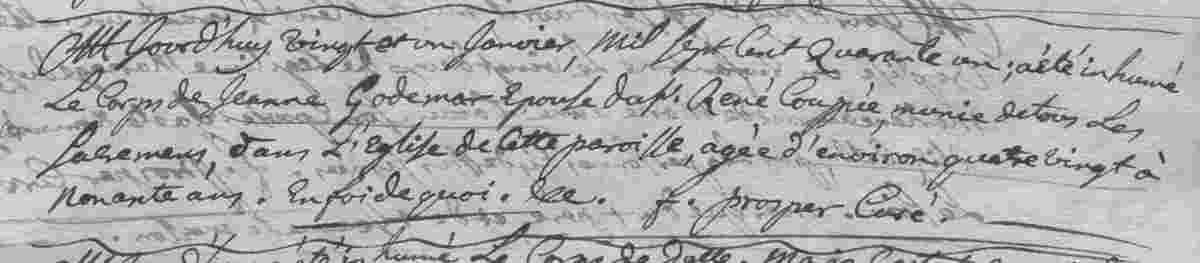 Aujourd'huy vingt et un Janvier, mil sept cent quarante un; a été inhumé
Le Corps de Jeanne Godemar Epouse du Sr. René Couppée, munie de tous Les
sacremens, dans L'Eglise de Cette paroisse, agée d'environ quatre vingt à
nonante ans. En foi de quoi. &c. f. prosper. Curé.
inhumé Le Corps de